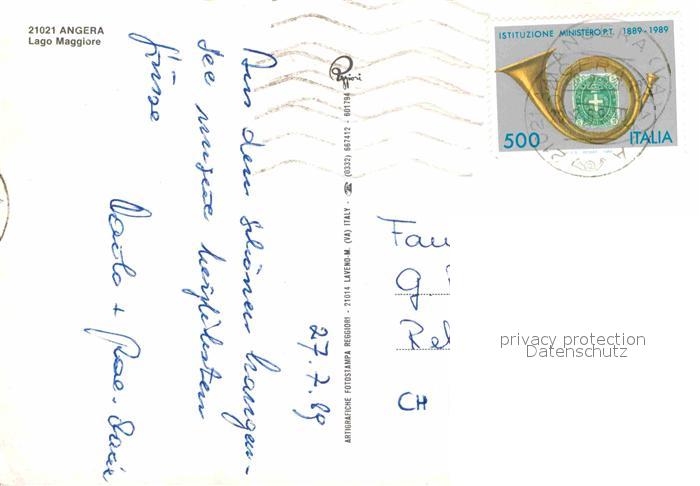 21021 ANGERA
Lago Maggiore
27.7.89
Aus dem schönen Langen-
see unsere herzlichsten
Grüsse
+ Rose-Marie
Reggiori
ARTIGRAFICHE FOTOSTAMPA REGGIORI - 21014 LAVENO-M. (VA) ITALY - ☎ (0332) 667412 - 601794
ISTITUZIONE MINISTERO P.T. 1889-1989
500 ITALIA
Fam
CH
privacy protection
Datenschutz